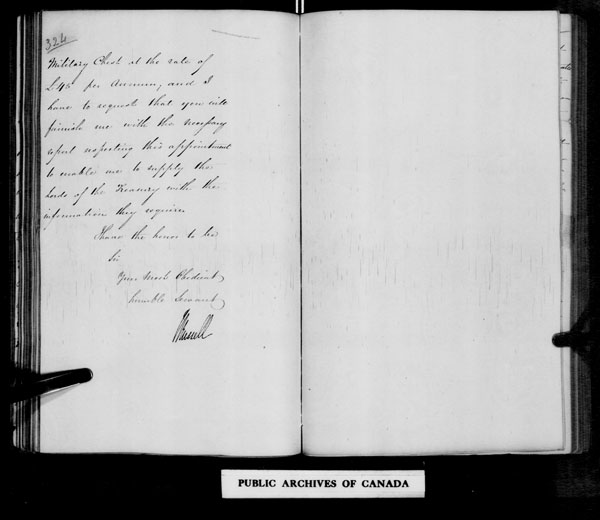 324
Military Chest at the rate of
£45 per Annum, and I
have to request that you will
furnish me with the necessary
report respecting this appointment
to enable me to supply the
Lords of the Treasury with the
information they require.
I have the honor to be
Sir
Your Most Obedient
humble Servant
JRussell
PUBLIC ARCHIVES OF CANADA